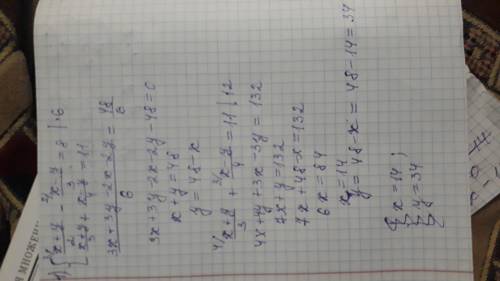 1) { 3/ (x+y)/2 - 2/ (x-y)/3 = 8 | ·6
(x+y)/3 + (x-y)/4 = 11
(3x+3y-2x-2y)/6 = 48/6
3x+3y-2x-2y-48=0
x+y=48
y=48-x
4/ (x+y)/3 + 3/ (x-y)/4 = 11 | 12
4x+4y+3x-3y=132
7x+y=132
7x+48-x=132
6x=84
x=14
y=48-x=48-14=34
{ x=14;
y=34
Я МНОЖЕН